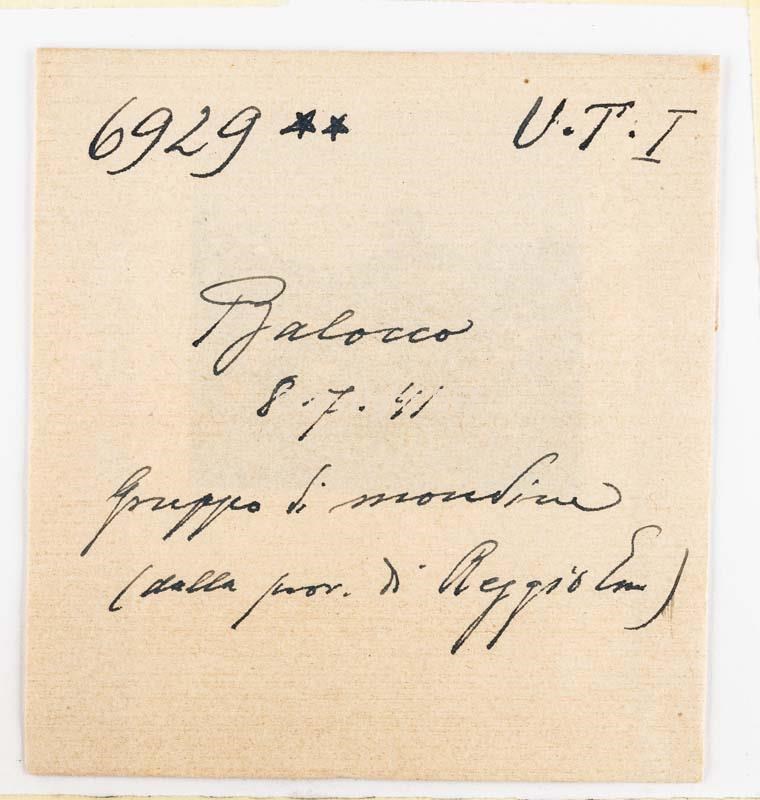 6929 ** U.T.I
Balocco
8.7.41
Gruppo di mondine
(dalla prov. di Reggio Em)